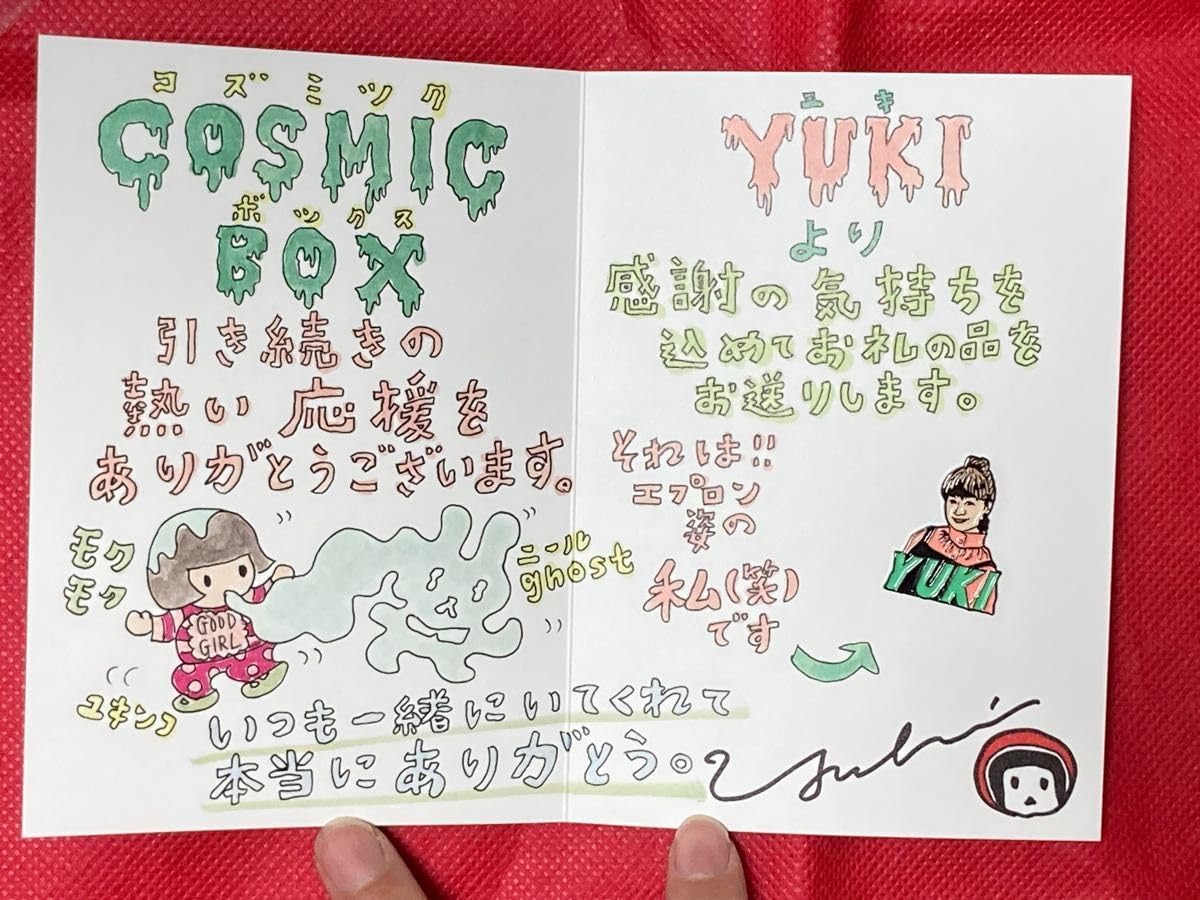 コズミック
COSMIC
ボックス
BOX
引き続きの
熱い応援を
ありがとうございます。
モク
モク
GOOD
GIRL
ニール
ghost
ユキンコ
ユキ
YUKI
より
感謝の気持ちを
込めてお礼の品を
お送りします。
それは!!
エプロン
姿の
私(笑)
です
YUKI
いつも一緒にいてくれて
本当にありがとう。